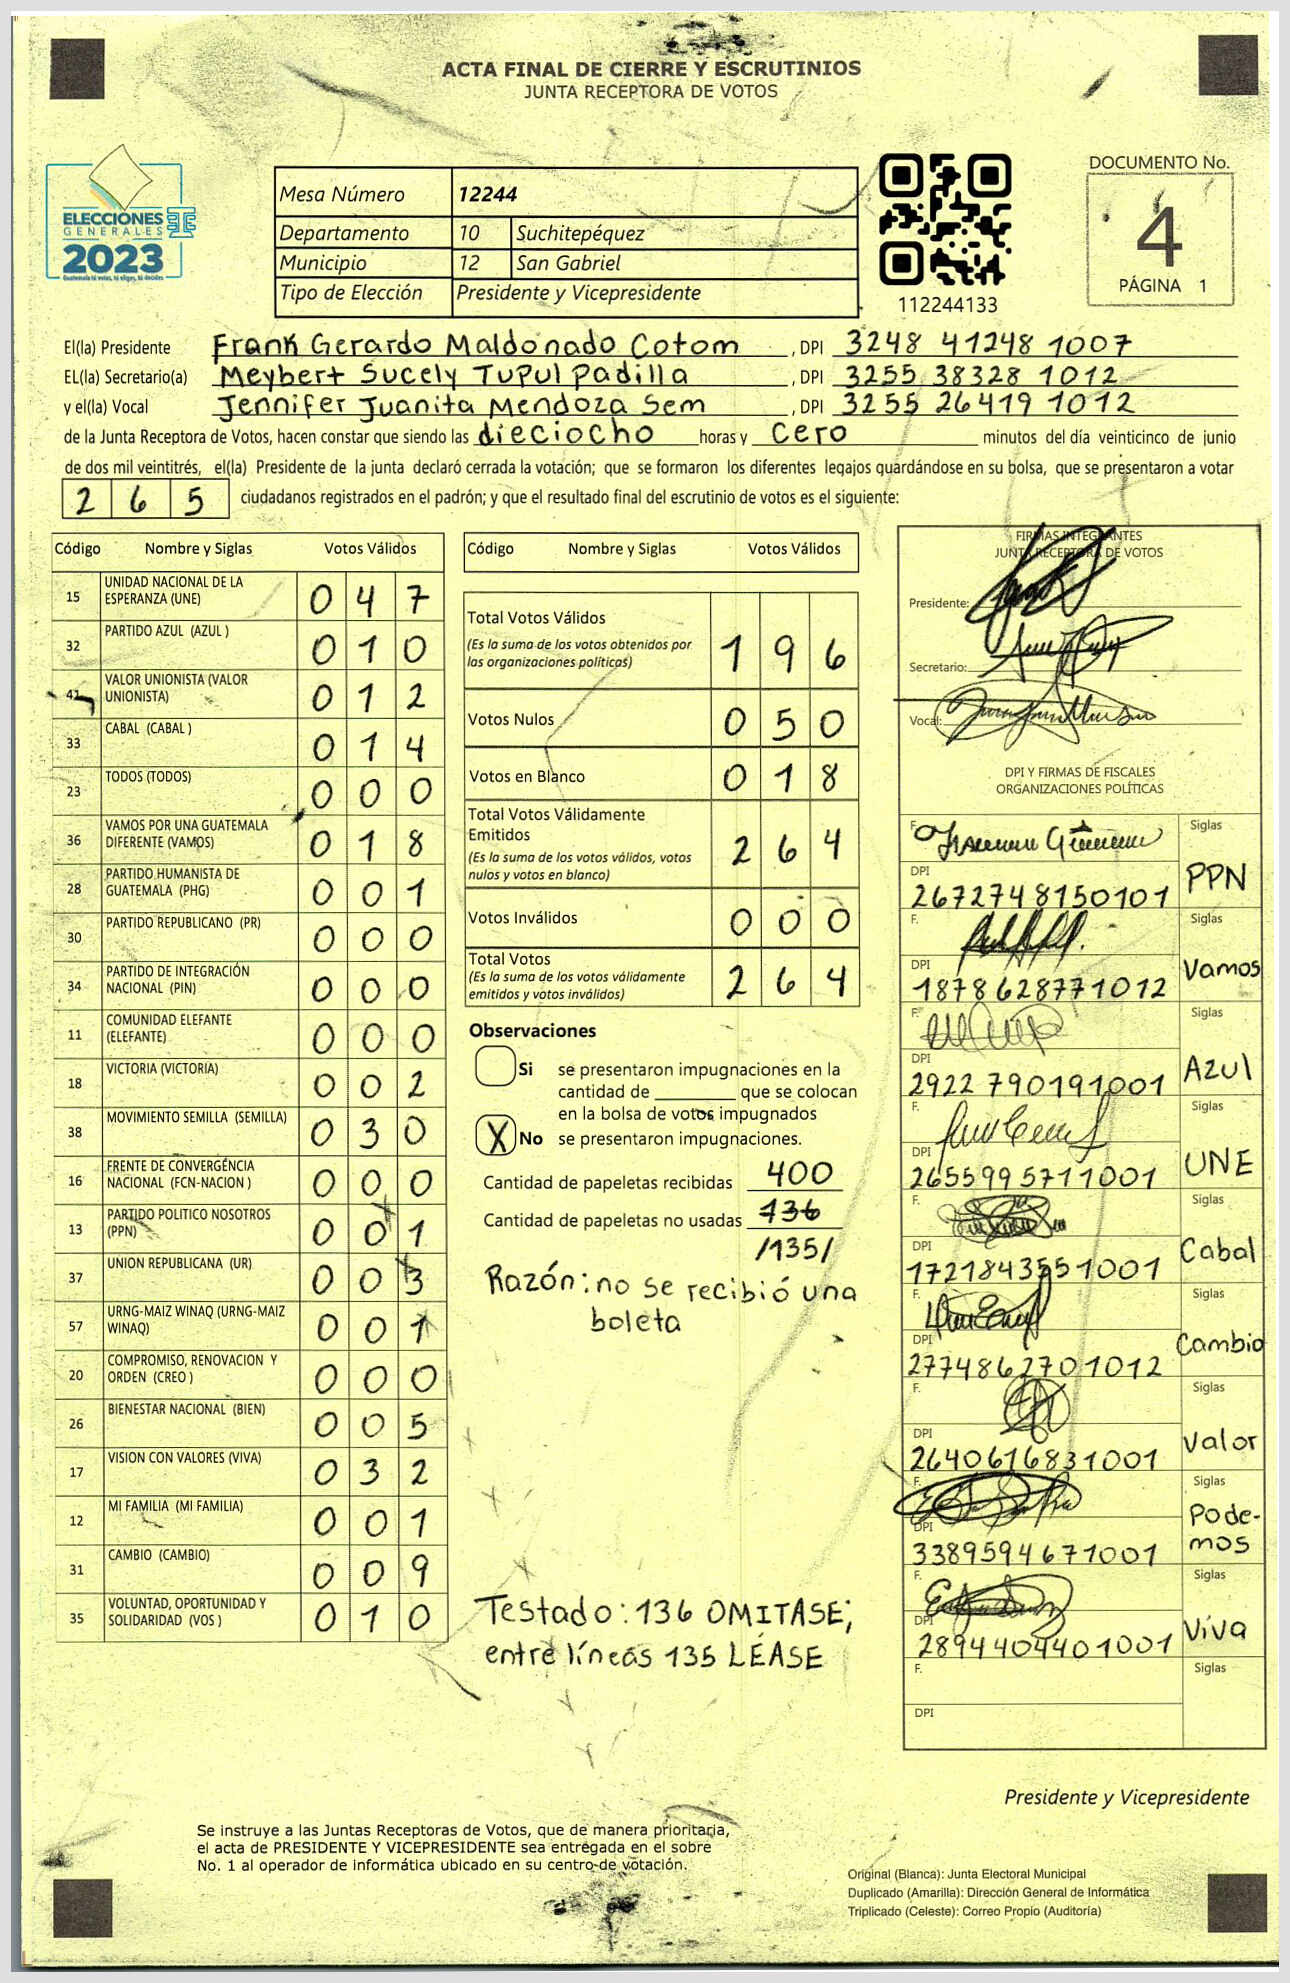 ACTA FINAL DE CIERRE Y ESCRUTINIOS
JUNTA RECEPTORA DE VOTOS
ELECCIONES
GENERALES
2023
Guatemala tú votas, tú eliges, tú decides
Mesa Número 12244
Departamento 10 Suchitepéquez
Municipio 12 San Gabriel
Tipo de Elección Presidente y Vicepresidente
112244133
DOCUMENTO No.
4
PÁGINA 1
El(la) Presidente Frank Gerardo Maldonado Cotom , DPI 3248 41248 1007
EL(la) Secretario(a) Meybert Sucely Tupul Padilla , DPI 3255 38328 1012
y el(la) Vocal Jennifer Juanita Mendoza Sem , DPI 3255 26419 1012
de la Junta Receptora de Votos, hacen constar que siendo las dieciocho horas y cero minutos del día veinticinco de junio
de dos mil veintitrés, el(la) Presidente de la junta declaró cerrada la votación; que se formaron los diferentes legajos guardándose en su bolsa, que se presentaron a votar
265 ciudadanos registrados en el padrón; y que el resultado final del escrutinio de votos es el siguiente:
Código Nombre y Siglas Votos Válidos
15 UNIDAD NACIONAL DE LA ESPERANZA (UNE) 047
32 PARTIDO AZUL (AZUL ) 010
41 VALOR UNIONISTA (VALOR UNIONISTA) 012
33 CABAL (CABAL ) 014
23 TODOS (TODOS) 000
36 VAMOS POR UNA GUATEMALA DIFERENTE (VAMOS) 018
28 PARTIDO HUMANISTA DE GUATEMALA (PHG) 001
30 PARTIDO REPUBLICANO (PR) 000
34 PARTIDO DE INTEGRACIÓN NACIONAL (PIN) 000
11 COMUNIDAD ELEFANTE (ELEFANTE) 000
18 VICTORIA (VICTORIA) 002
38 MOVIMIENTO SEMILLA (SEMILLA) 030
16 FRENTE DE CONVERGENCIA NACIONAL (FCN-NACION ) 000
13 PARTIDO POLITICO NOSOTROS (PPN) 001
37 UNION REPUBLICANA (UR) 003
57 URNG-MAIZ WINAQ (URNG-MAIZ WINAQ) 001
20 COMPROMISO, RENOVACION Y ORDEN (CREO ) 000
26 BIENESTAR NACIONAL (BIEN) 005
17 VISION CON VALORES (VIVA) 032
12 MI FAMILIA (MI FAMILIA) 001
31 CAMBIO (CAMBIO) 009
35 VOLUNTAD, OPORTUNIDAD Y SOLIDARIDAD (VOS ) 010
Código Nombre y Siglas Votos Válidos
Total Votos Válidos 196
(Es la suma de los votos obtenidos por
las organizaciones políticas)
Votos Nulos 050
Votos en Blanco 018
Total Votos Válidamente
Emitidos 264
(Es la suma de los votos válidos, votos
nulos y votos en blanco)
Votos Inválidos 000
Total Votos 264
(Es la suma de los votos válidamente
emitidos y votos inválidos)
Observaciones
Si se presentaron impugnaciones en la
cantidad de ________ que se colocan
en la bolsa de votos impugnados
X No se presentaron impugnaciones.
Cantidad de papeletas recibidas 400
Cantidad de papeletas no usadas 136
/135/
Razón: no se recibió una
boleta
Testado: 136 OMITASE;
entre líneas 135 LÉASE
FIRMAS INTEGRANTES
JUNTA RECEPTORA DE VOTOS
Presidente:
Secretario:
Vocal:
DPI Y FIRMAS DE FISCALES
ORGANIZACIONES POLÍTICAS
F. Siglas
DPI 2672748150101 PPN
F. Siglas
DPI 1878628771012 Vamos
F. Siglas
DPI 2922 790191001 Azul
F. Siglas
DPI 2655995711001 UNE
F. Siglas
DPI 1721843551001 Cabal
F. Siglas
DPI 2774862701012 Cambio
F. Siglas
DPI 2640616831001 Valor
F. Siglas
DPI 3389594671001 Pode-
mos
F. Siglas
DPI 2894404401001 Viva
F. Siglas
DPI
Presidente y Vicepresidente
Se instruye a las Juntas Receptoras de Votos, que de manera prioritaria,
el acta de PRESIDENTE Y VICEPRESIDENTE sea entregada en el sobre
No. 1 al operador de informática ubicado en su centro de votación.
Original (Blanca): Junta Electoral Municipal
Duplicado (Amarilla): Dirección General de Informática
Triplicado (Celeste): Correo Propio (Auditoría)